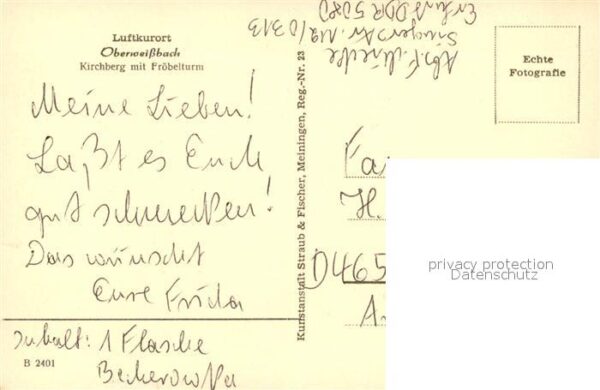 Luftkurort
Oberweißbach
Kirchberg mit Fröbelturm
Meine Lieben!
Laßt es Euch
gut schmecken!
Das wünscht
Eure Frida
Inhalt: 1 Flasche
Becherowka
B 2401
Kunstanstalt Straub & Fischer, Meiningen, Reg.-Nr. 23
Abs. F.
Str. 112/0313
Erfurt DDR 5080
Echte
Fotografie
Fa
H.
D465
A
privacy protection
Datenschutz